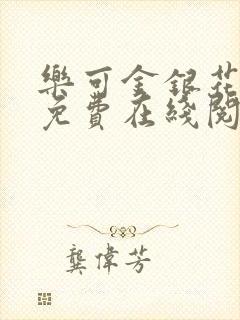 樂可金銀花
免費在綫閱
龔偉芳